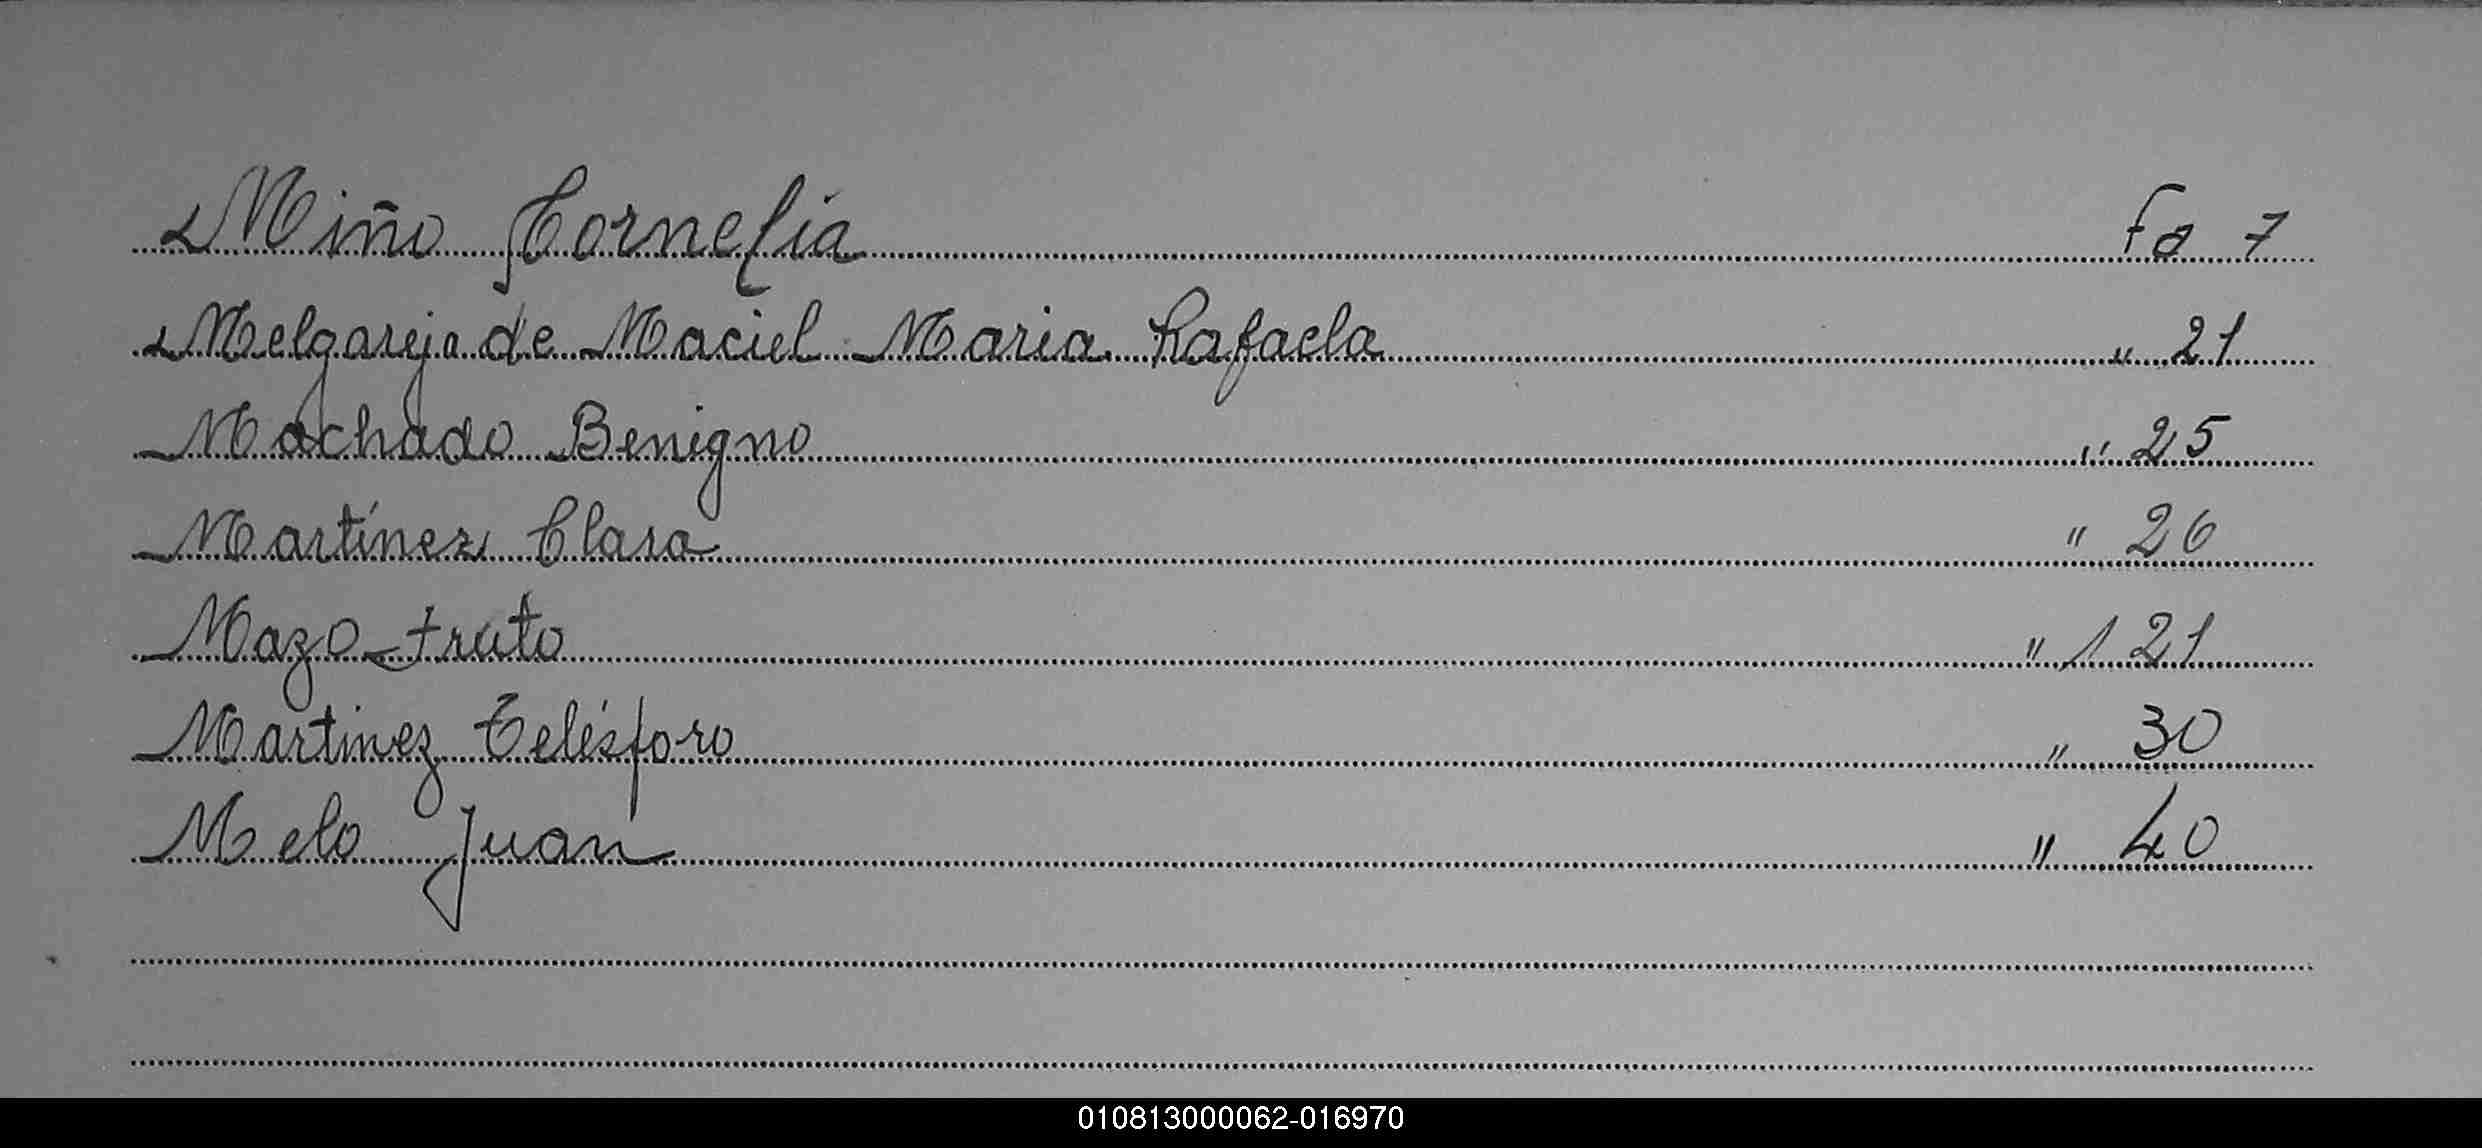 Miño Cornelia Fo 7
Melgarejo de Maciel Maria Rafaela " 21
Machado Benigno " 25
Martínez Clara " 26
Mazo Fruto " 121
Martinez Telésforo " 30
Melo Juan " 40
010813000062-016970